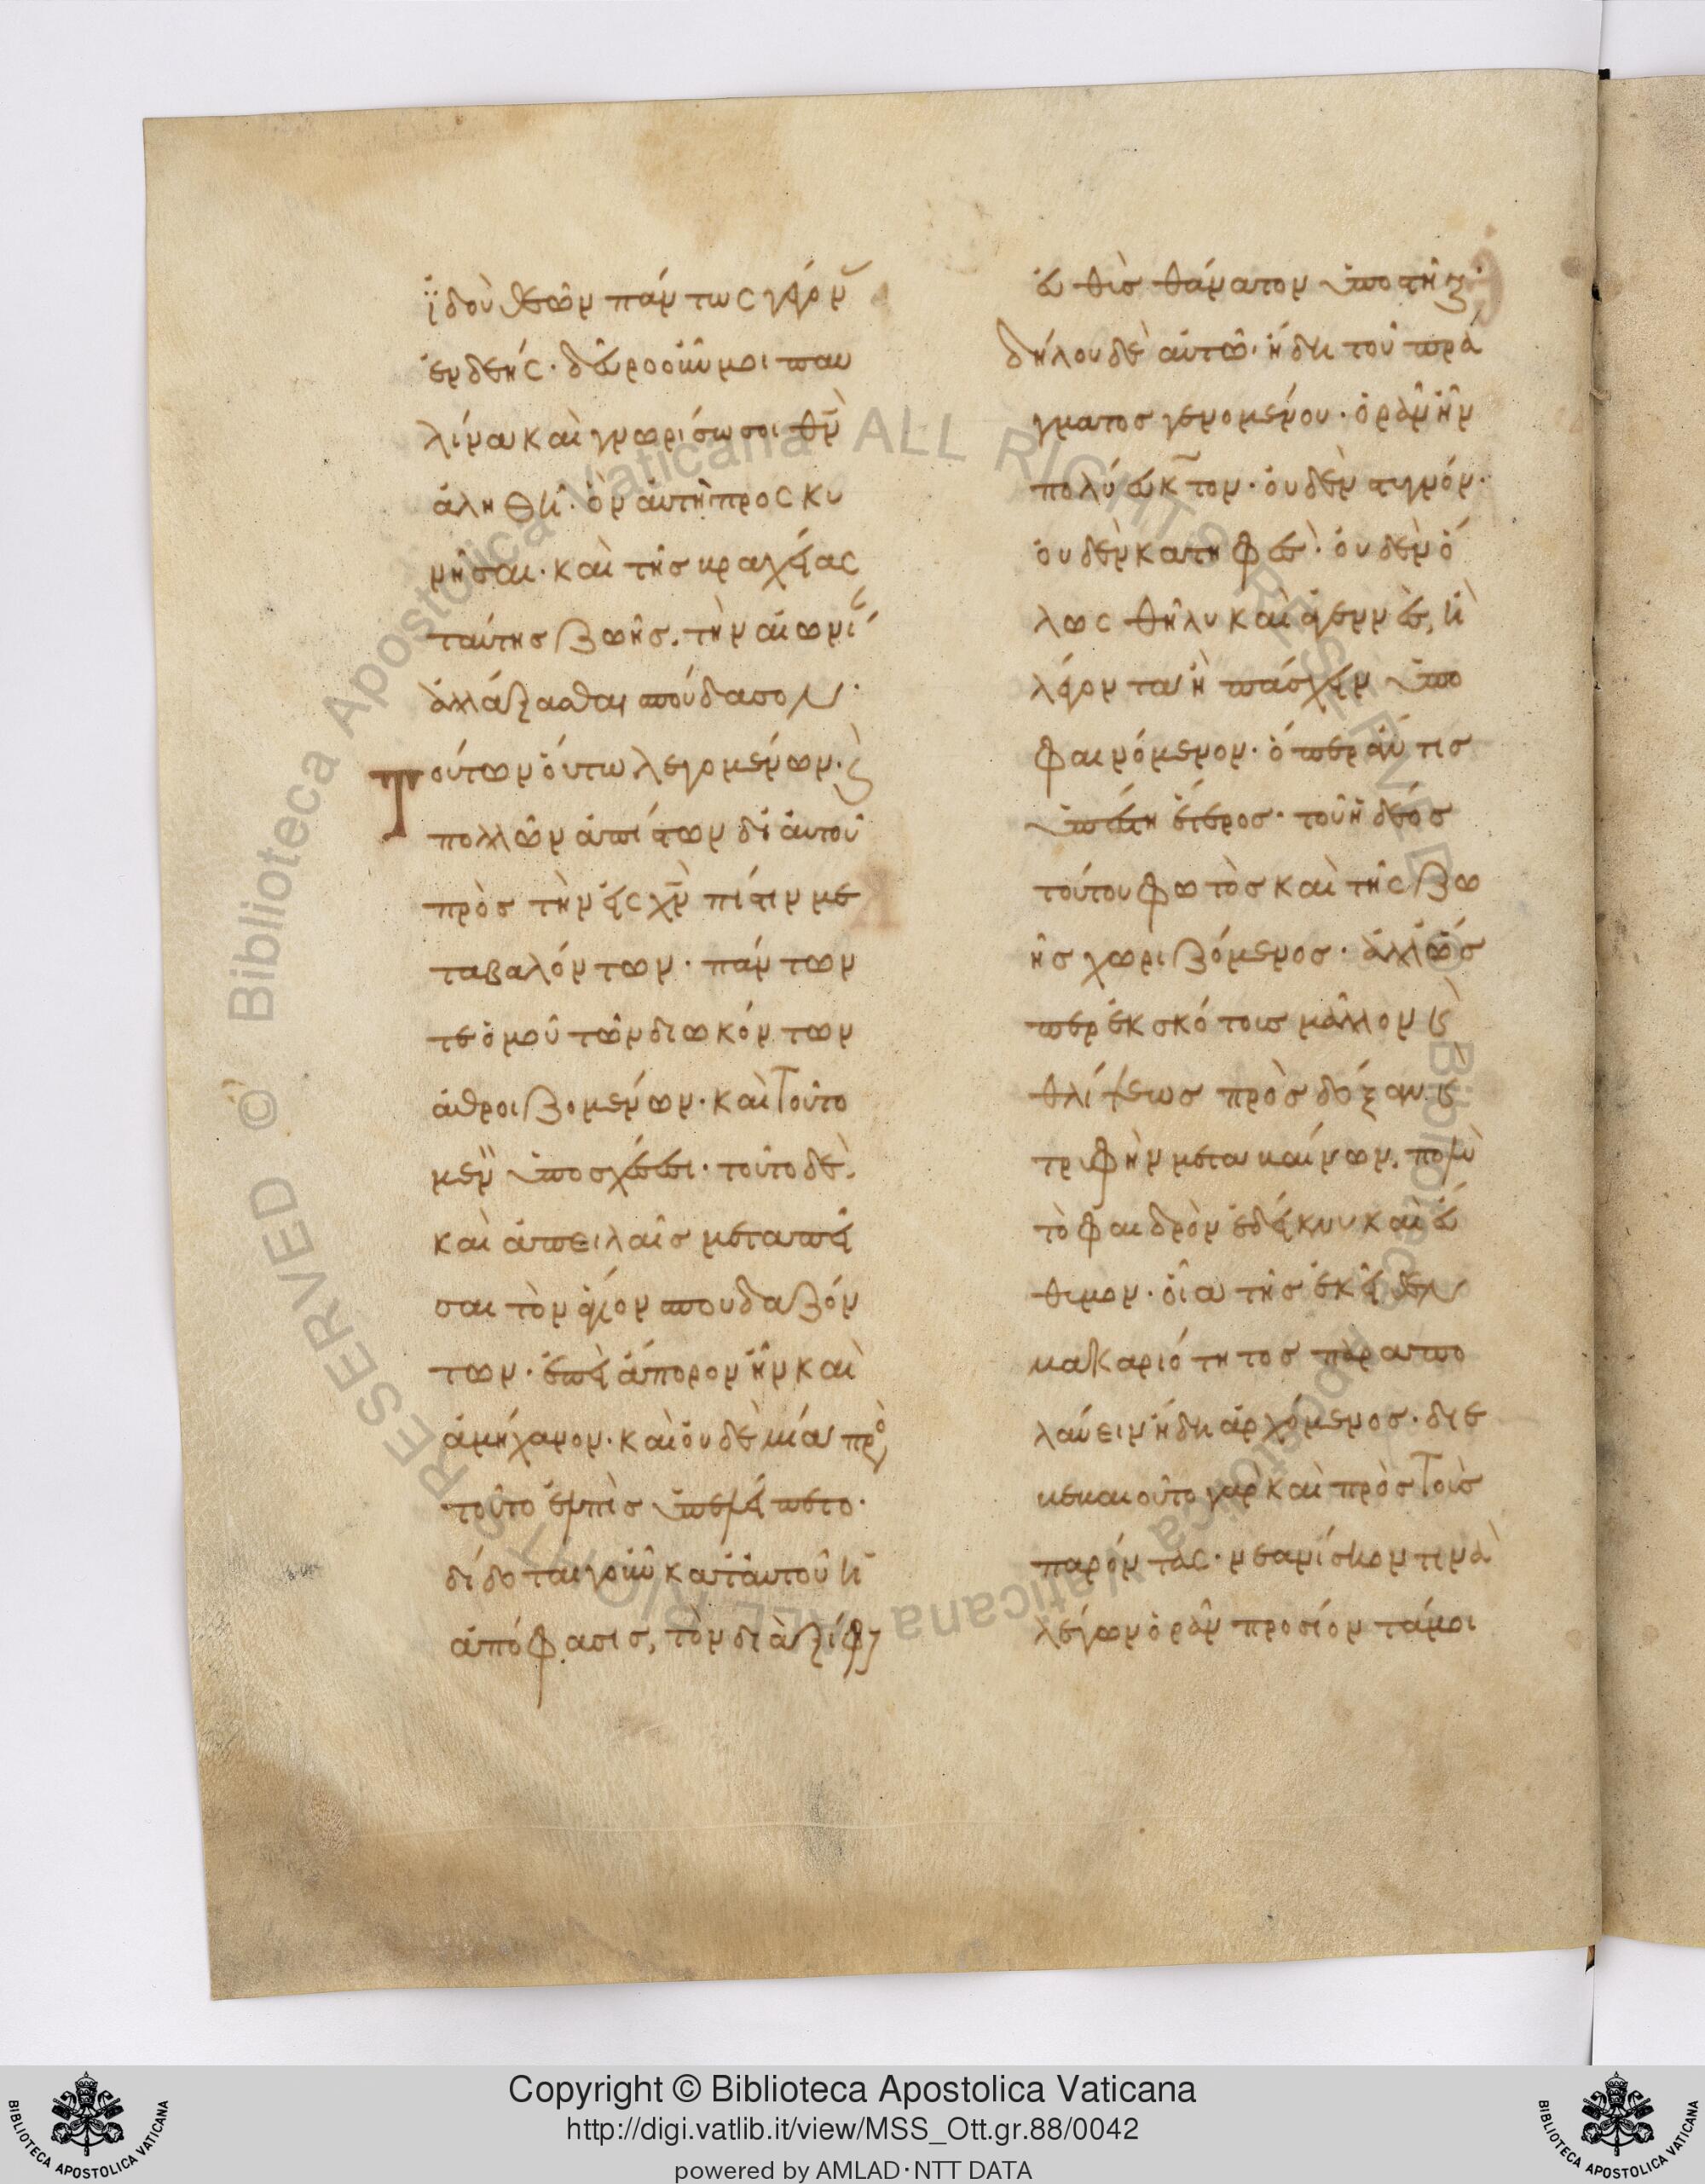 ἰδοὺ θεῶν πάντως γέρον
ἐνδεής· δεῦρο οὖν μοι πα
λίνα καὶ γνωρίσω σοι θν
ἀληθῆ· ὃν αὐτὴ προςκυ
νῆσαι· καὶ τῆς βραχείας
ταύτης ζωῆς. τὴν αἰωνι
ἀλλάξασθαι σπούδασον·
Τούτων οὕτω λεγομένων· καὶ
πολλῶν ἀπίστων δι αὐτοῦ
πρὸς τὴν εἰς χν πίστιν με
ταβαλόντων· πάντων
τε ὁμοῦ τῶν διωκόντων
ἀθροιζομένων· καὶ τοῦτο
μὲν ὑποσχέσεσι· τοῦτο δὲ.
καὶ ἀπειλαῖς μεταπεῖ
σαι τὸν ἅγιον σπουδαζόν
των· ἐπεὶ ἄπορον ἦν καὶ
ἀμήχανον· καὶ οὐδὲ μία πρὸ
τοῦτο ἐλπὶς ὑπελείπετο·
δίδοται γοῦν κατ αὐτοῦ ἡ
ἀπόφασις, τὸν διὰ ξίφους
εὐθὺς θάνατον ὑποστῆναι·
δήλου δὲ αὐτῶ· ἤδη τοῦ πρά
γματος γενομένου· ὁρᾶν ἦν
πολύευκτον· οὐδὲν στυγνόν·
οὐδὲν κατηφές· οὐδὲν ὅ
λως θῆλυ καὶ ἀγεννές, ἢ
λέγοντα ἢ πάσχειν ὑπο
φαινόμενον· ὅπερ ἄν τις
ὑπέστη ἕτερος· τοῦ ἡδέος
τούτου φωτὸς καὶ τῆς ζω
ῆς χωριζόμενος· ἀλλ ὥς
περ ἐκ σκότους μᾶλλον καὶ
θλίψεως πρὸς δόξαν καὶ
τρυφὴν μεταβαίνων. πολὺ
τὸ φαιδρὸν ἐδείκνυ καὶ εὔ
θυμον· οἷα τῆς ἐκεῖθεν
μακαριότητος παραπο
λαύειν ἤδη ἀρχόμενος· διε
κεκαιοῦτο γὰρ καὶ πρὸς τοὺς
παρόντας· νεανίσκον τινὰ
λέγων ὁρᾶν προσιόντά μοι